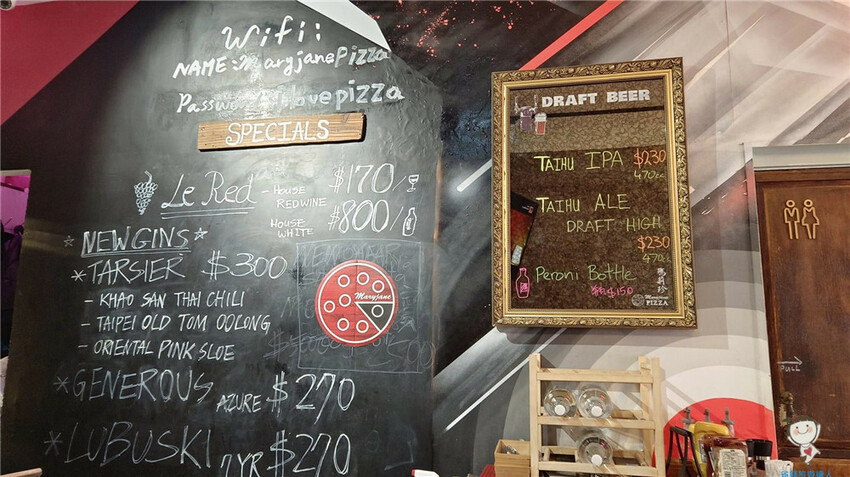 Wifi:
NAME: Maryjanepizza
pizza
SPECIALS
Le Red - HOUSE REDWINE $170/
HOUSE WHITE $800/
* NEW GINS *
* TARSIER $300
- KHAO SAN THAI CHILI
- TAIPEI OLD TOM OOLONG
- ORIENTAL PINK SLOE
* GENEROUS AZURE $270
* LUBUSKI 7YR $270
Maryjane
DRAFT BEER
TAIHU IPA $230
470cc
TAIHU ALE
DRAFT HIGH
$230
470cc
Peroni Bottle
$150
瑪莉珍
Maryjane
PIZZA
PULL